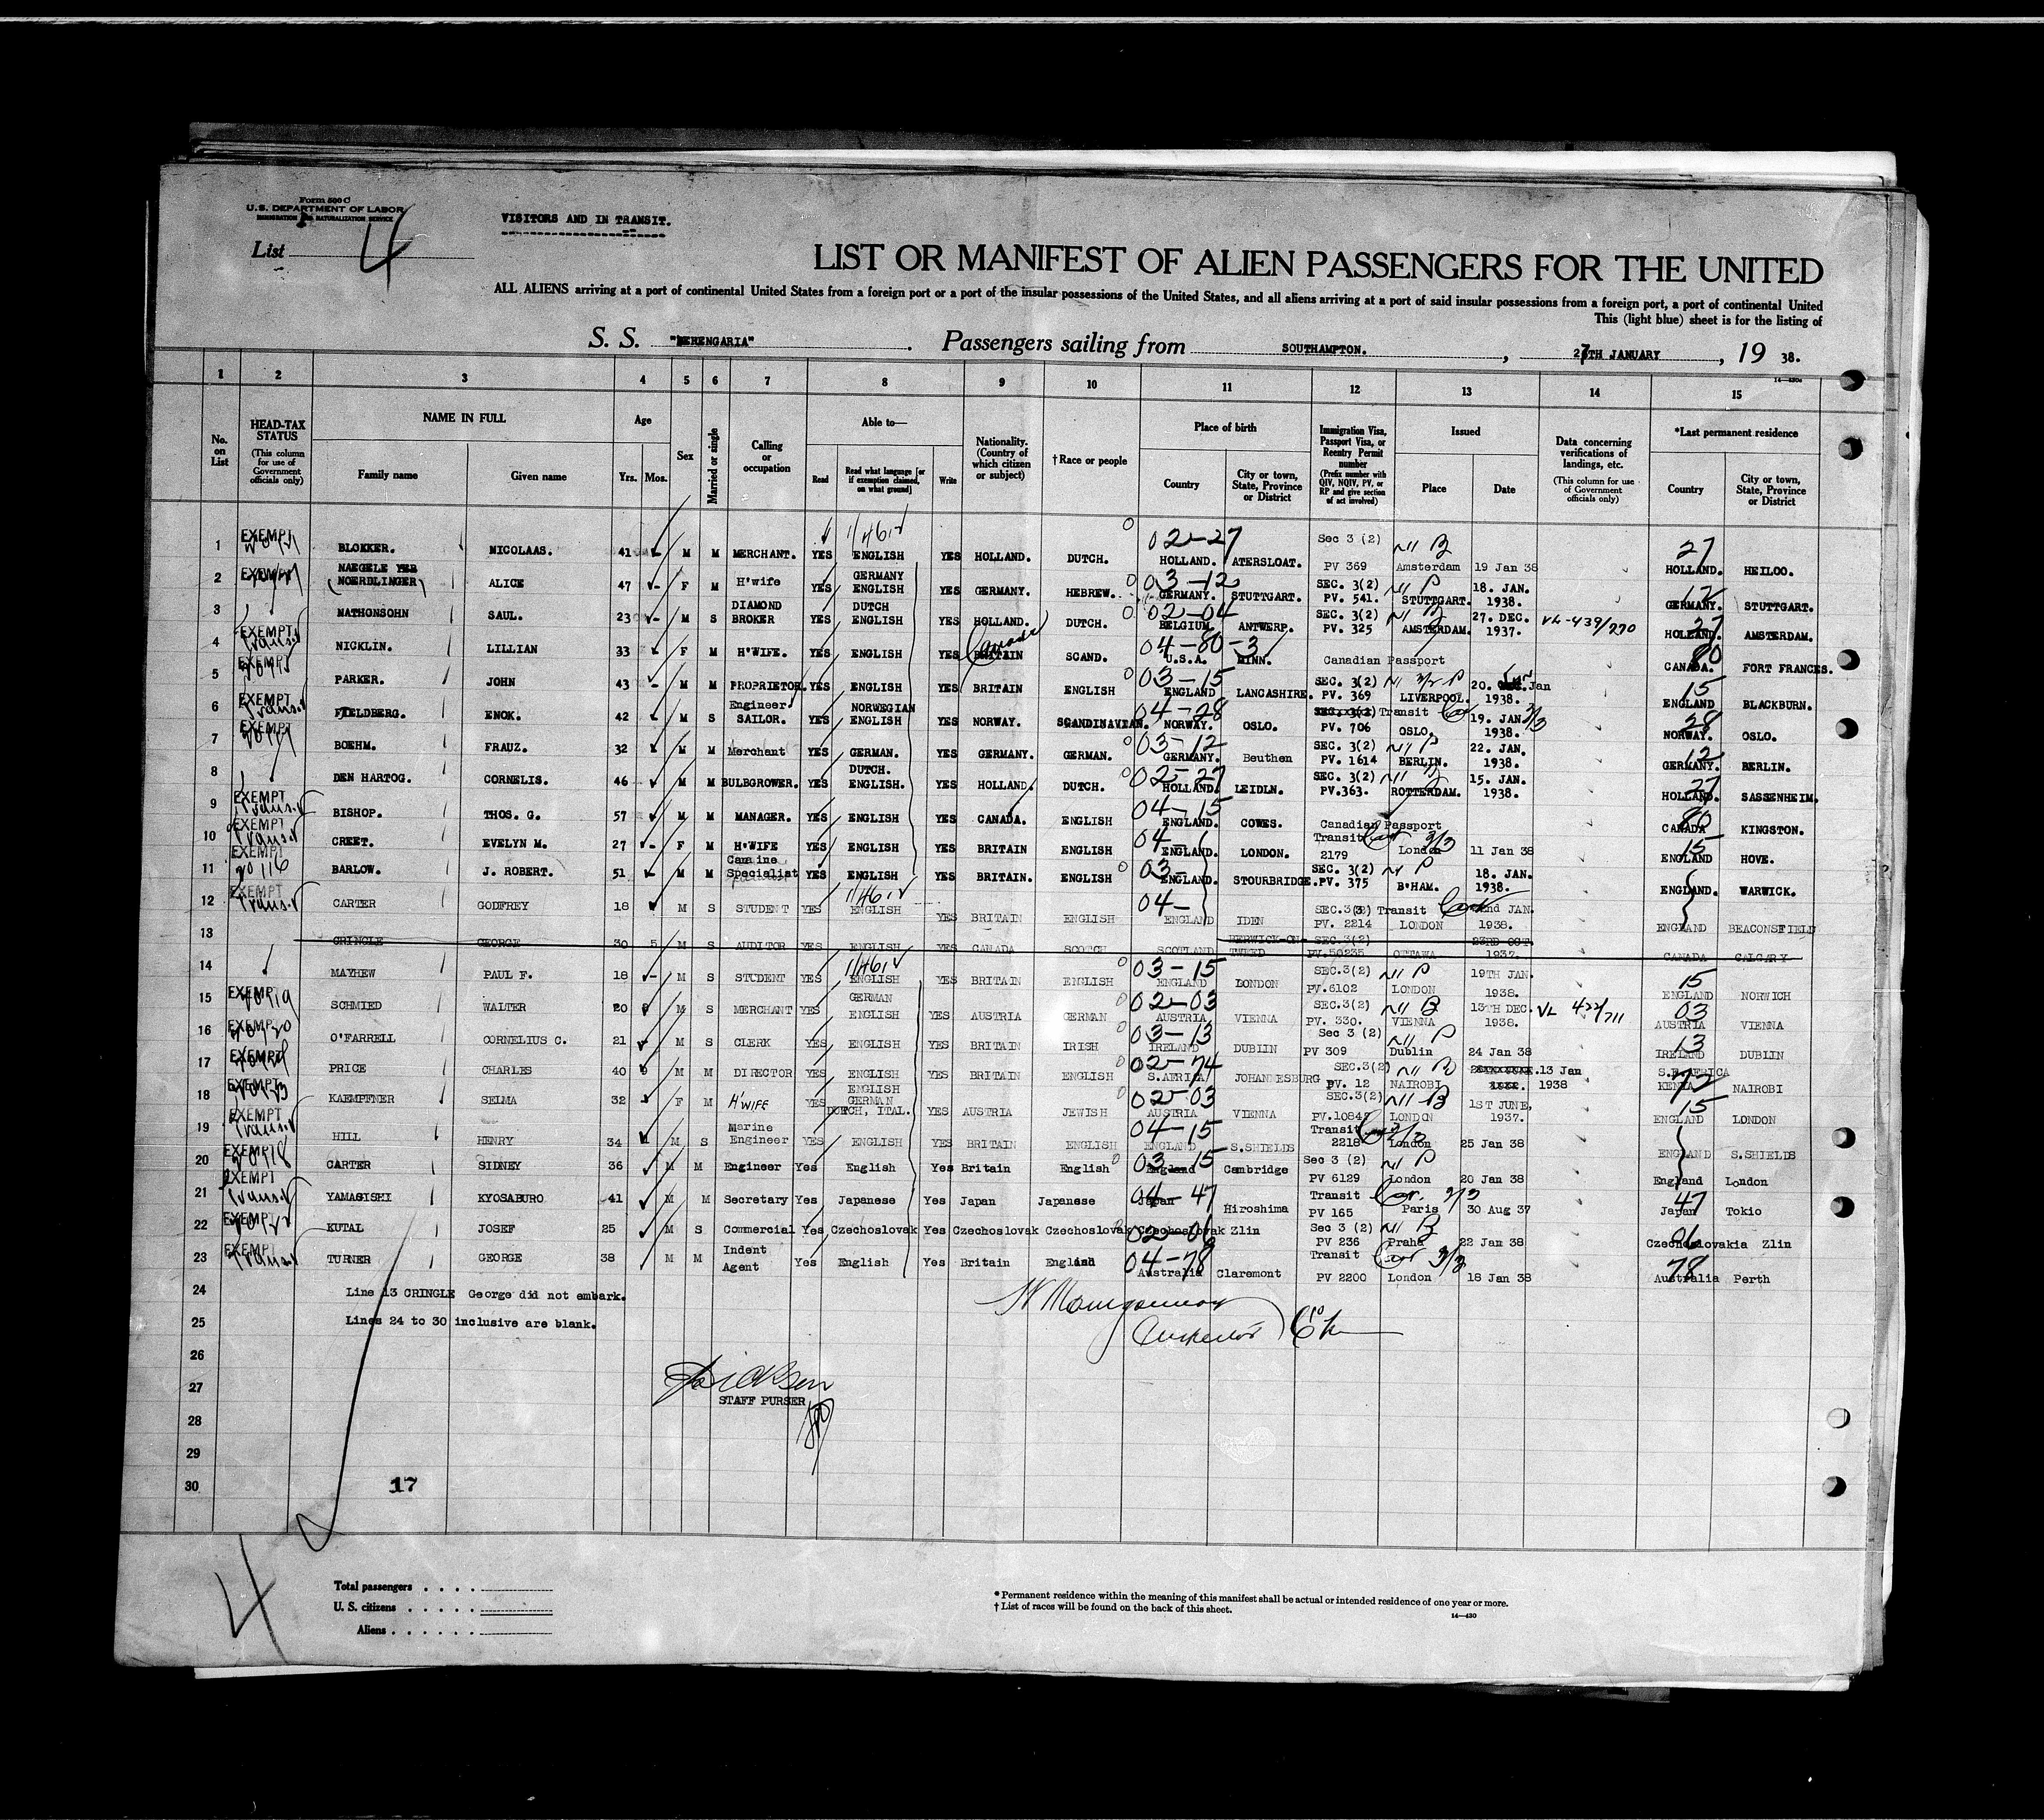 Form 500 C
U.S. DEPARTMENT OF LABOR
IMMIGRATION AND NATURALIZATION SERVICE
VISITORS AND IN TRANSIT.
List 4
LIST OR MANIFEST OF ALIEN PASSENGERS FOR THE UNITED
ALL ALIENS arriving at a port of continental United States from a foreign port or a port of the insular possessions of the United States, and all aliens arriving at a port of said insular possessions from a foreign port, a port of continental United
This (light blue) sheet is for the listing of
S. S. "BERENGARIA". Passengers sailing from SOUTHAMPTON. , 27TH JANUARY , 19 38.
1 2 3 4 5 6 7 8 9 10 11 12 13 14 15
No. on List
HEAD-TAX STATUS (This column for use of Government officials only)
NAME IN FULL Family name Given name
Age Yrs. Mos.
Sex
Married or single
Calling or occupation
Able to— Read Read what language [or if exemption claimed, on what ground] Write
Nationality. (Country of which citizen or subject)
†Race or people
Place of birth Country City or town, State, Province or District
Immigration Visa, Passport Visa, or Reentry Permit number (Prefix number with QIV, NQIV, PV, or RP and give section of act involved)
Issued Place Date
Data concerning verifications of landings, etc. (This column for use of Government officials only)
*Last permanent residence Country City or town, State, Province or District
1 EXEMPT BLOKKER. NICOLAAS. 41 M M MERCHANT. YES ENGLISH YES HOLLAND. DUTCH. 02-27 HOLLAND. ATERSLOAT. Sec 3 (2) PV 369 Amsterdam 19 Jan 38 27 HOLLAND. HEILOO.
2 EXEMPT NAEGELE (NOERDLINGER) ALICE 47 F M H'wife YES GERMANY ENGLISH YES GERMANY. HEBREW. 03-12 GERMANY. STUTTGART. SEC. 3(2) PV. 541. STUTTGART. 18. JAN. 1938. 12 GERMANY. STUTTGART.
3 NATHONSOHN SAUL. 23 M S DIAMOND BROKER YES DUTCH ENGLISH YES HOLLAND. DUTCH. 02-04 BELGIUM. ANTWERP. SEC. 3(2) PV. 325 AMSTERDAM. 27. DEC. 1937. VL-439/770 27 HOLLAND. AMSTERDAM.
4 EXEMPT Transit NICKLIN. LILLIAN 33 F M H'WIFE. YES ENGLISH YES BRITAIN Canada SCAND. 04-80-3 U.S.A. MINN. Canadian Passport 80 CANADA. FORT FRANCES.
5 EXEMPT PARKER. JOHN 43 M M PROPRIETOR. YES ENGLISH YES BRITAIN ENGLISH 03-15 ENGLAND LANCASHIRE. SEC. 3(2) PV. 369 LIVERPOOL. 20. Jan 1938. 15 ENGLAND BLACKBURN.
6 EXEMPT Transit FIELDBERG. ENOK. 42 M S Engineer SAILOR. YES NORWEGIAN ENGLISH YES NORWAY. SCANDINAVIAN. 04-28 NORWAY. OSLO. SEC. 3(2) Transit PV. 706 OSLO. 19. JAN. 1938. 28 NORWAY. OSLO.
7 EXEMPT BOEHM. FRAUZ. 32 M M Merchant YES GERMAN. YES GERMANY. GERMAN. 03-12 GERMANY. Beuthen SEC. 3(2) PV. 1614 BERLIN. 22. JAN. 1938. 12 GERMANY. BERLIN.
8 DEN HARTOG. CORNELIS. 46 M M BULBGROWER. YES DUTCH. ENGLISH. YES HOLLAND. DUTCH. 02-27 HOLLAND. LEIDLN. SEC. 3(2) PV.363. ROTTERDAM. 15. JAN. 1938. 27 HOLLAND. SASSENHEIM.
9 EXEMPT Transit BISHOP. THOS. G. 57 M M MANAGER. YES ENGLISH YES CANADA. ENGLISH 04-15 ENGLAND. COWES. Canadian Passport 80 CANADA KINGSTON.
10 EXEMPT Transit CREET. EVELYN M. 27 F M H'WIFE YES ENGLISH YES BRITAIN ENGLISH 04- ENGLAND. LONDON. Transit 2179 London 11 Jan 38 15 ENGLAND HOVE.
11 EXEMPT BARLOW. J. ROBERT. 51 M M Specialist YES ENGLISH YES BRITAIN. ENGLISH 03- ENGLAND. STOURBRIDGE. SEC. 3(2) PV. 375 B'HAM. 18. JAN. 1938. ENGLAND. WARWICK.
12 EXEMPT Transit CARTER GODFREY 18 M S STUDENT YES ENGLISH YES BRITAIN ENGLISH 04- ENGLAND IDEN SEC.3(3) Transit PV. 2214 LONDON 22nd JAN. 1938. ENGLAND BEACONSFIELD
13 CRINGLE GEORGE 30 5 M S AUDITOR YES ENGLISH YES CANADA SCOTCH SCOTLAND BERWICK-ON-TWEED SEC.3(2) PV.50235 OTTAWA 23RD OCT. 1937. CANADA CALGARY
14 MAYHEW PAUL F. 18 M S STUDENT YES ENGLISH YES BRITAIN ENGLISH 03-15 ENGLAND LONDON SEC.3(2) PV.6102 LONDON 19TH JAN. 1938. 15 ENGLAND NORWICH
15 EXEMPT SCHMIED WALTER 20 M S MERCHANT YES GERMAN ENGLISH YES AUSTRIA GERMAN 02-03 AUSTRIA VIENNA SEC.3(2) PV. 330. VIENNA 13TH DEC. 1938. VL 432/711 03 AUSTRIA VIENNA
16 EXEMPT O'FARRELL CORNELIUS C. 21 M S CLERK YES ENGLISH YES BRITAIN IRISH 03-13 IRELAND DUBLIN Sec 3 (2) PV 309 Dublin 24 Jan 38 13 IRELAND DUBLIN
17 EXEMPT PRICE CHARLES 40 9 M M DIRECTOR YES ENGLISH YES BRITAIN ENGLISH 02-74 S.AFRICA JOHANDESBURG SEC.3(2) PV. 12 NAIROBI 13 Jan 1938 72 S.E.AFRICA KENYA NAIROBI
18 EXEMPT KAEMPFNER SELMA 32 F M H'WIFE YES ENGLISH GERMAN DUTCH, ITAL. YES AUSTRIA JEWISH 02-03 AUSTRIA VIENNA SEC.3(2) PV.10847 LONDON 1ST JUNE, 1937. 15 ENGLAND LONDON
19 EXEMPT Transit HILL HENRY 34 M S Marine Engineer YES ENGLISH YES BRITAIN ENGLISH 04-15 ENGLAND S.SHIELDS Transit 2218 London 25 Jan 38 ENGLAND S.SHIELDS
20 EXEMPT CARTER SIDNEY 36 M M Engineer Yes English Yes Britain English 03-15 England Cambridge Sec 3 (2) PV 6129 London 20 Jan 38 England London
21 EXEMPT Transit YAMAGISHI KYOSABURO 41 M M Secretary Yes Japanese Yes Japan Japanese 04-47 Japan Hiroshima Transit PV 165 Paris 30 Aug 37 47 Japan Tokio
22 EXEMPT KUTAL JOSEF 25 M S Commercial Yes Czechoslovak Yes Czechoslovak Czechoslovak 02-06 Czechoslovak Zlin Sec 3 (2) PV 236 Praha 22 Jan 38 06 Czechoslovakia Zlin
23 EXEMPT Transit TURNER GEORGE 38 M M Indent Agent Yes English Yes Britain English 04-78 Australia Claremont Transit PV 2200 London 18 Jan 38 78 Australia Perth
24 Line 13 CRINGLE George did not embark.
25 Lines 24 to 30 inclusive are blank.
Inspector
26
27
STAFF PURSER
28
29
30 17
4
Total passengers
U. S. citizens
Aliens
* Permanent residence within the meaning of this manifest shall be actual or intended residence of one year or more.
† List of races will be found on the back of this sheet.
14—430